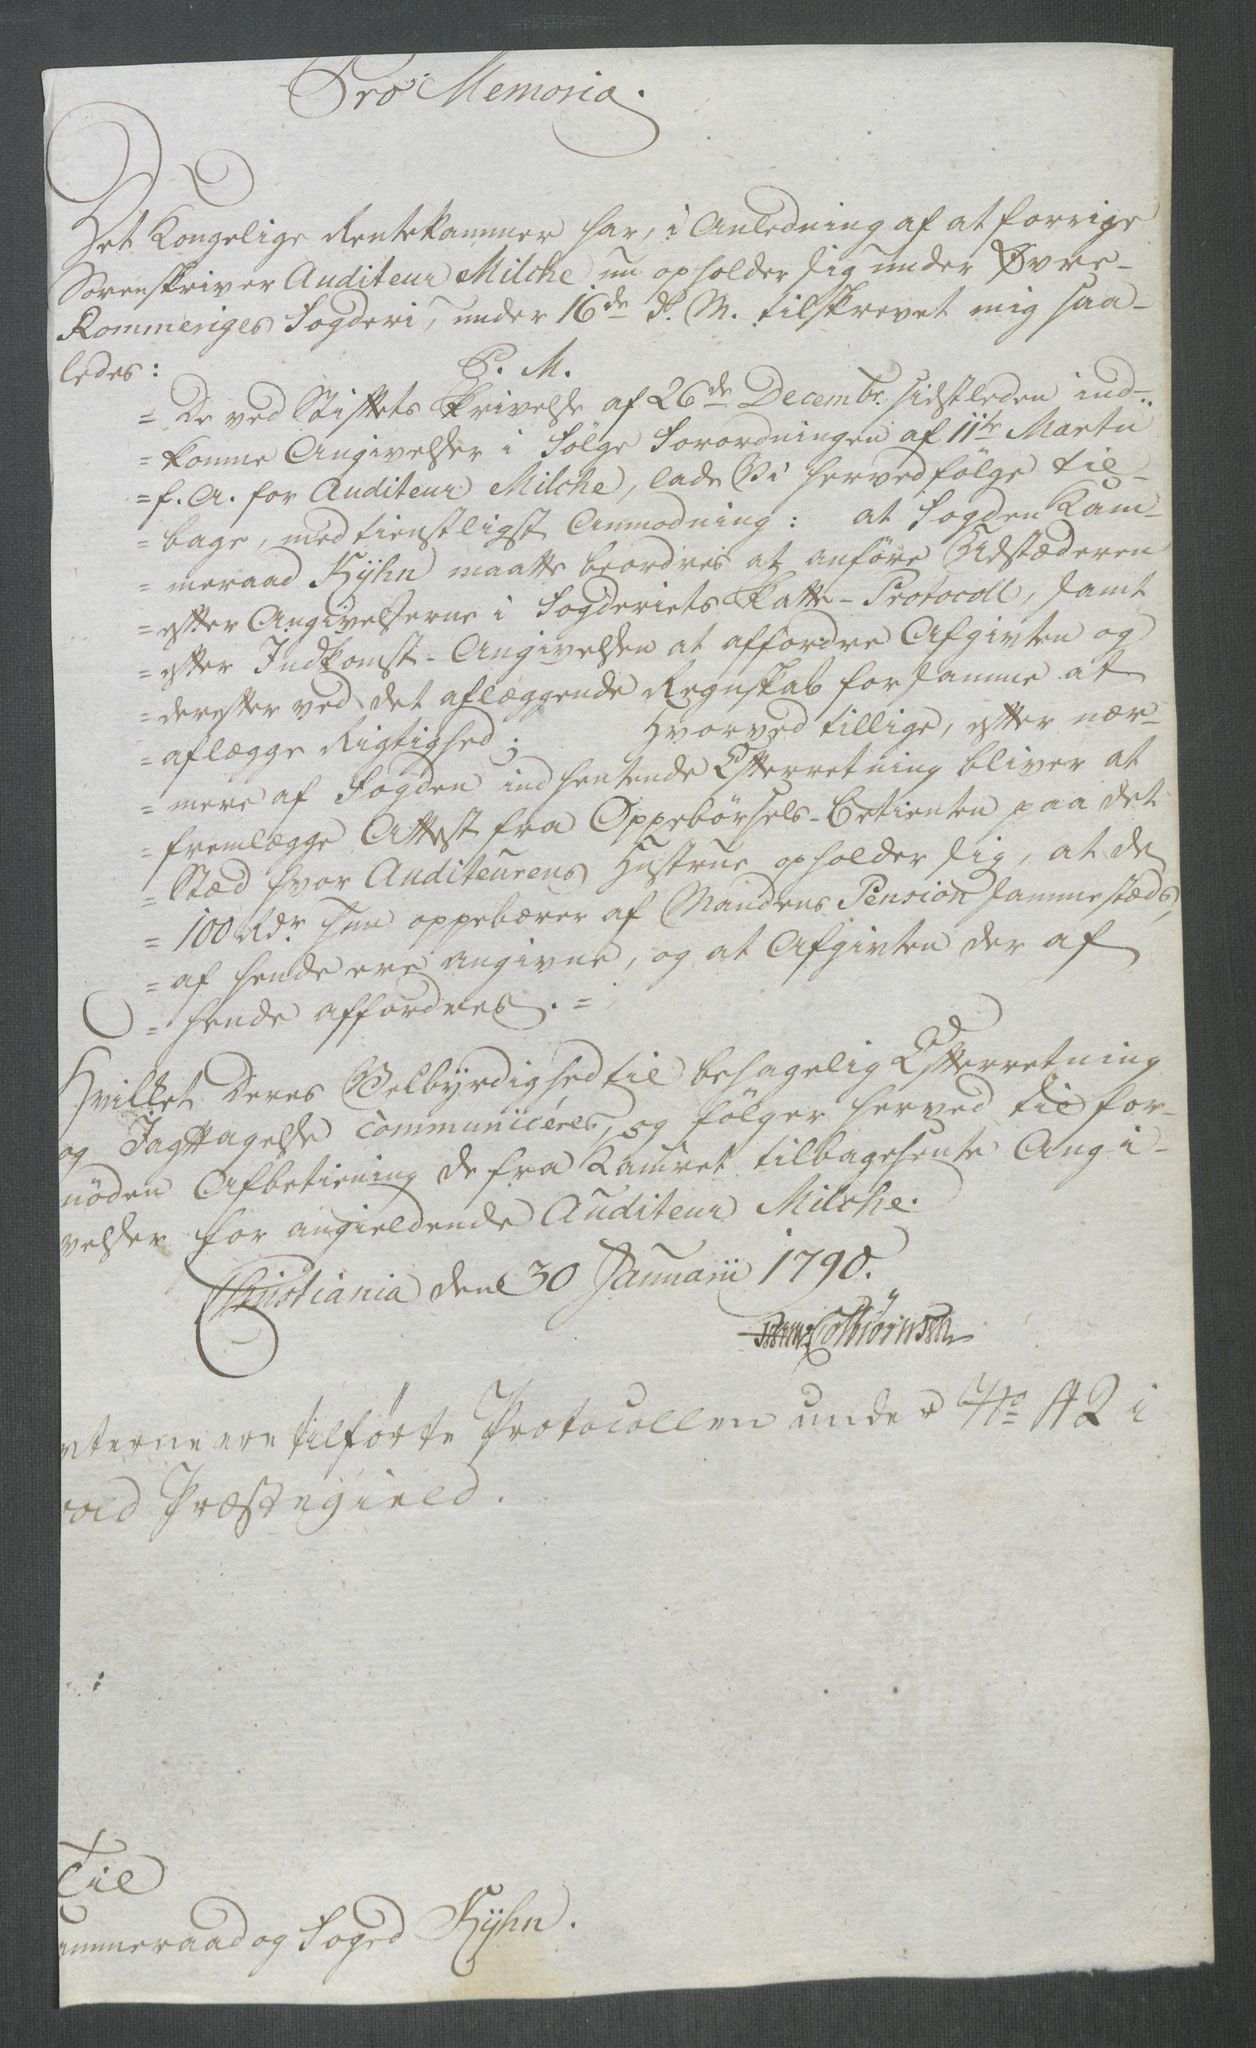 Pro Memoria.
Det Kongelige Rentekammer har, i Anledning af at forrige
Sorenskriver Auditeur Milche nu opholder sig under Øvre-
Rommeriges Fogderi, under 16de d. M. tilskrevet mig saa-
ledes:
P. M.
= De ved Stiftets Skrivelse af 26de Decembr. sidstleden ind-
= komne Angivelser i Følge Forordningen af 11te Martii
= f. A. for Auditeur Milche, lade Vi herved følge til-
= bage, med tienstligst Anmodning: at Fogden Kam-
= meraad Kÿhn maatte beordres at anføre Udstæderen
= efter Angivelserne i Fogderiets Skatte-Protocoll, samt
= efter Indkomst-Angivelsen at affordre Afgivten og
= derefter ved det aflæggende Regnskab for samme at
= aflægge Rigtighed; Hvorved tillige, efter nær-
= mere af Fogden indhentende Efterretning bliver at
= fremlægge Attest fra Oppebörsels-Betienten paa det
= Stæd hvor Auditeurens Hustrue opholder sig, at de
= 100 Rdr. hun oppebærer af Mandens Pension sammestæds,
= af hende ere angivne, og at Afgivten der af
= hende affordres. =
Hvilket Deres Velbyrdighed til behagelig Efterretning
og Jagttagelse communiceres, og følger herved til for-
nöden Afbetiening de fra Kamret tilbagesente Angi-
velser for angieldende Auditeur Milche.
Christiania den 30 Januarii 1790.
Colbiörnsen
nterne ere tilførte Protocollen under No 42 i
vold Præstegield.
Til
ammeraad og Foged Kÿhn.